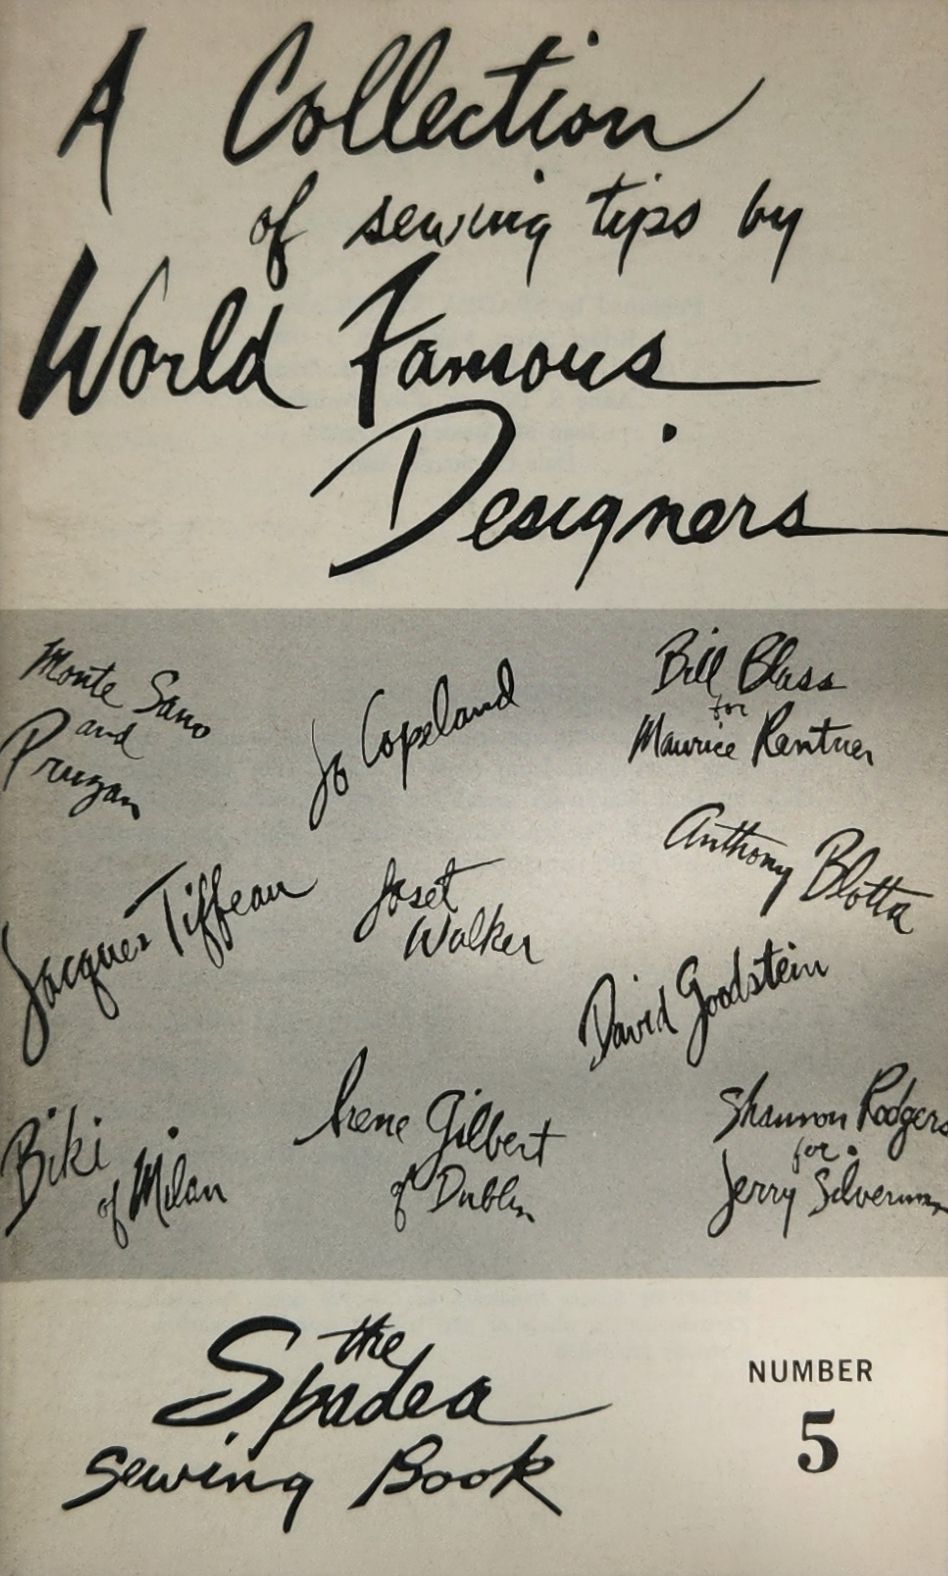 A Collection
of sewing tips by
World Famous
Designers
Monte Sano
and
Pruzan
Jo Copeland
Bill Blass
for
Maurice Rentner
Jacques Tiffeau
Joset
Walker
Anthony Blotta
David Goodstein
Biki
of Milan
Irene Gilbert
of Dublin
Shannon Rodgers
for
Jerry Silverman
the
Spadea
Sewing Book
NUMBER
5